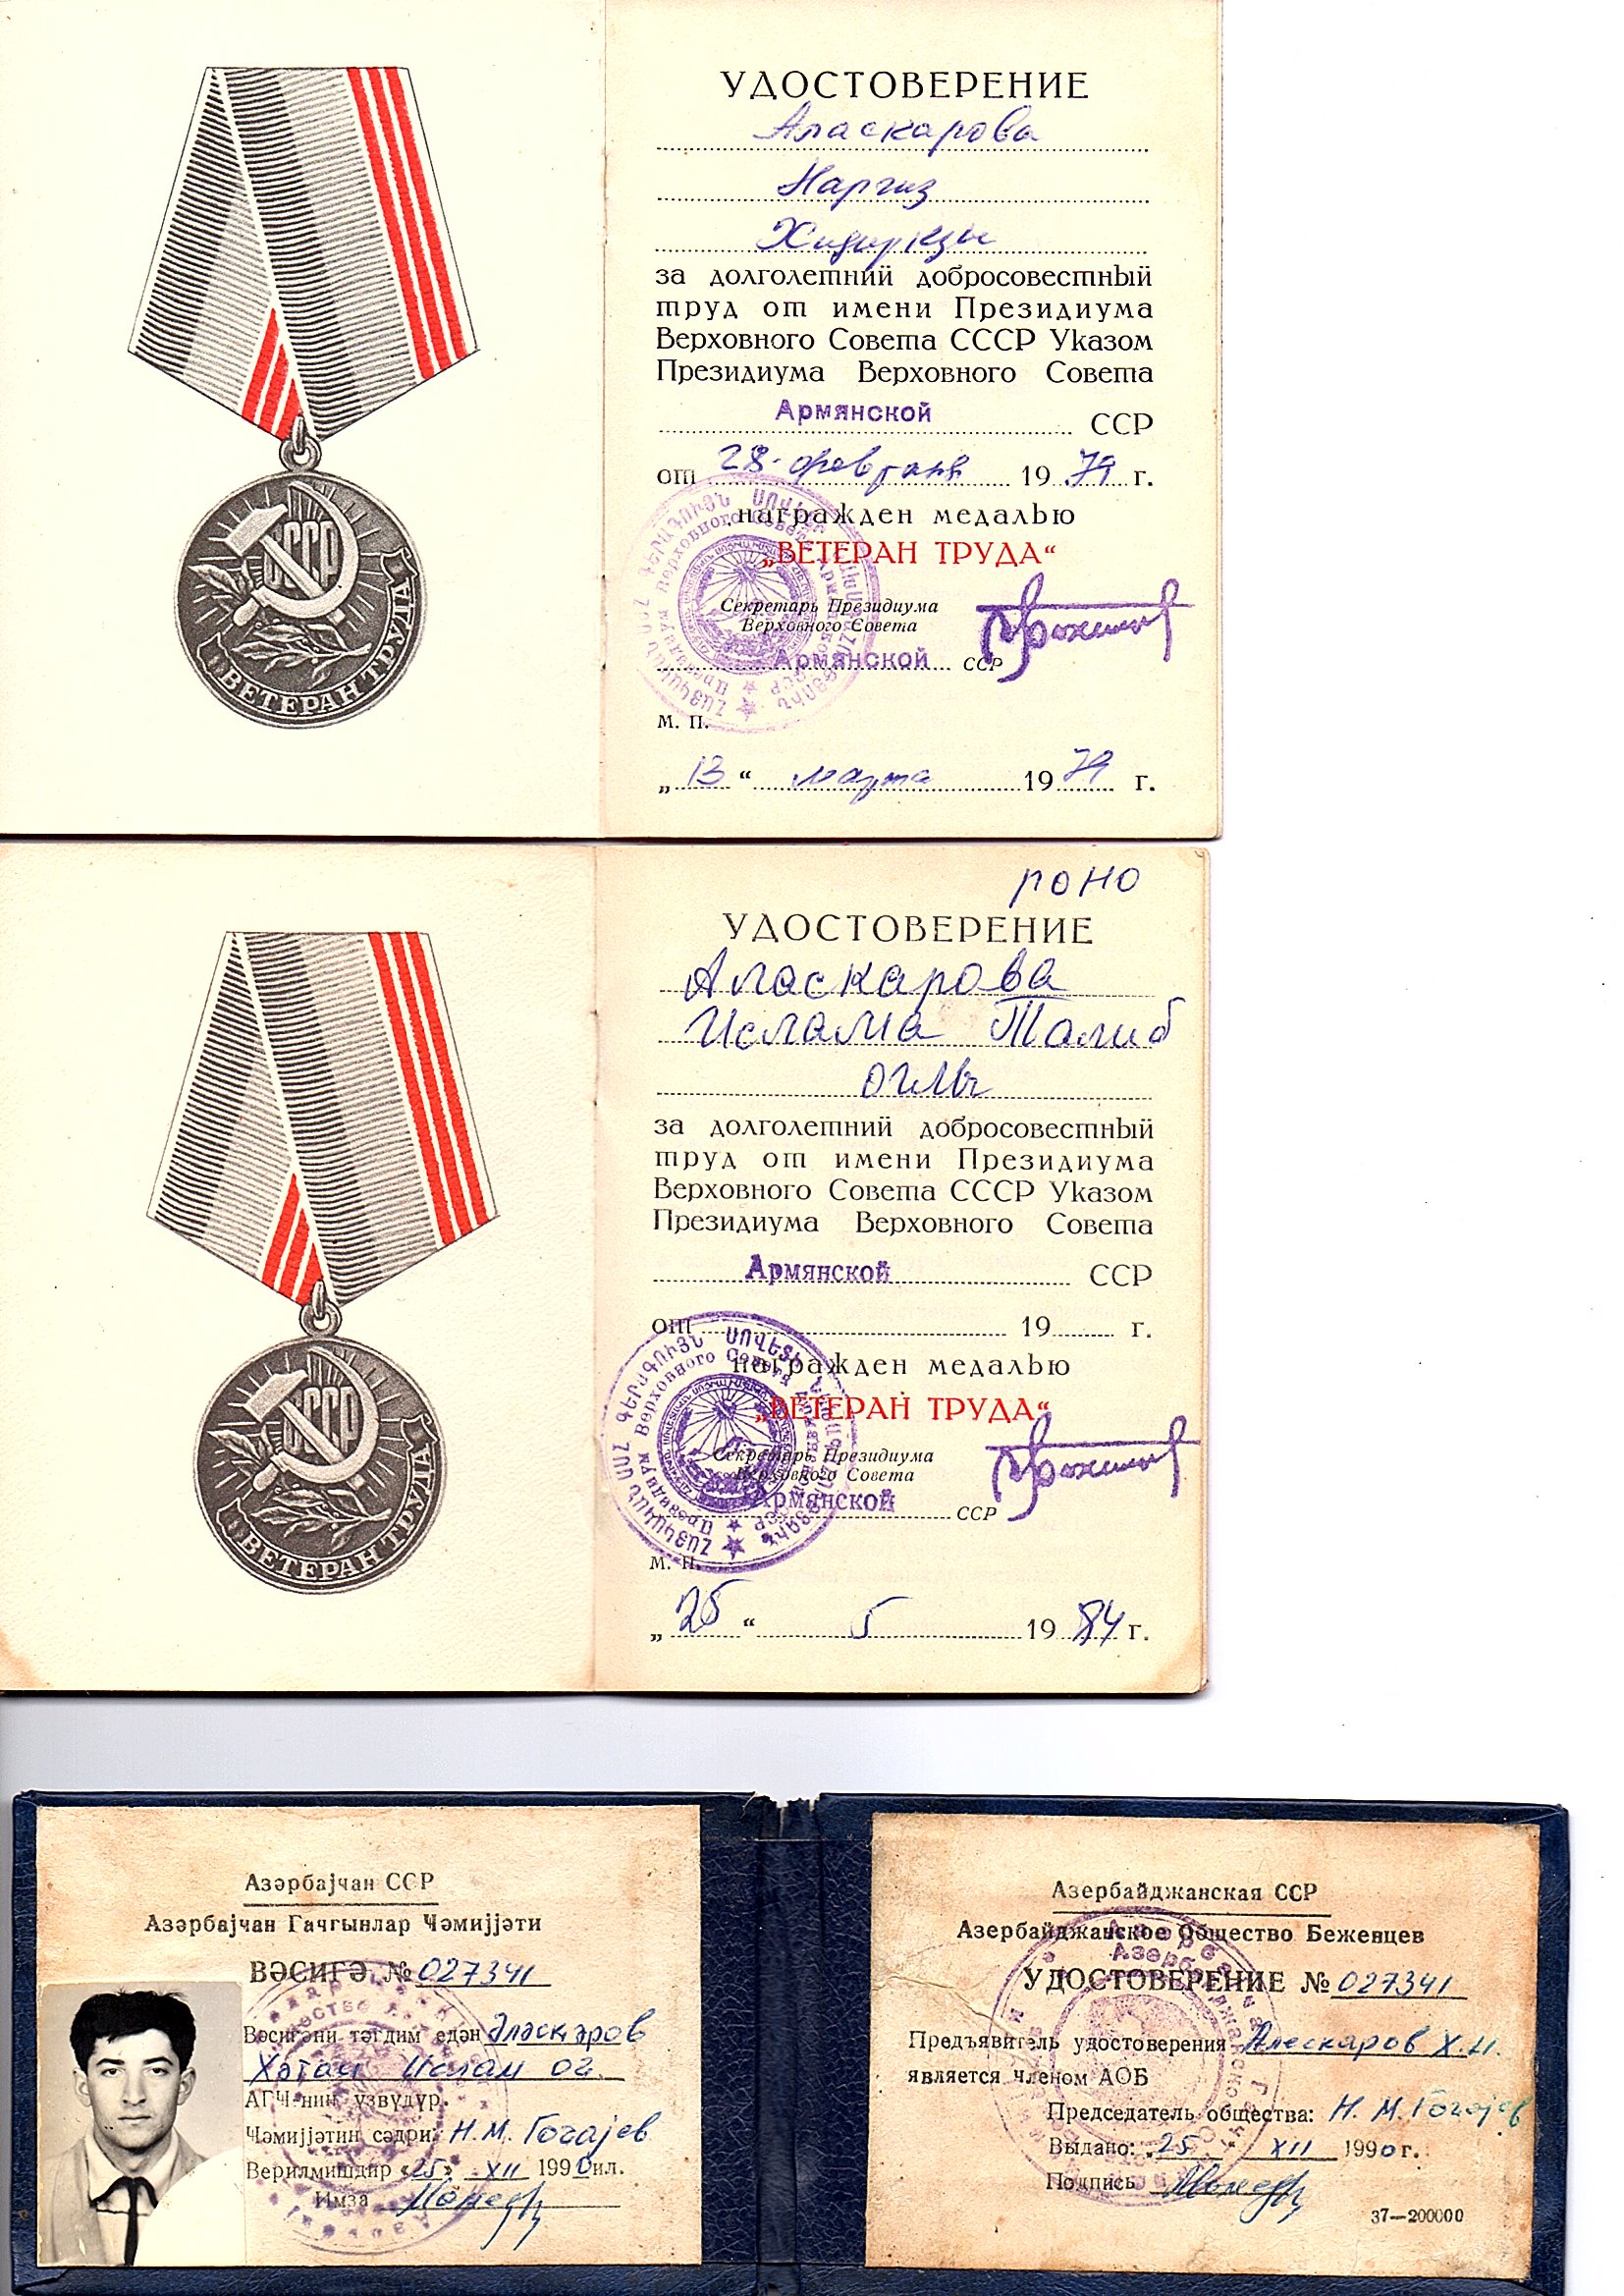 УДОСТОВЕРЕНИЕ
Аласкарова
Наргиз
Хидиркзы
за долголетний добросовестный
труд от имени Президиума
Верховного Совета СССР Указом
Президиума Верховного Совета
Армянской ССР
от 28 февраля 1979 г.
награжден медалью
„ВЕТЕРАН ТРУДА“
Секретарь Президиума
Верховного Совета
Армянской ССР
М. П.
„13“ марта 1979 г.
СССР
ВЕТЕРАН ТРУДА
РОНО
УДОСТОВЕРЕНИЕ
Аласкарова
Ислама Талиб
оглы
за долголетний добросовестный
труд от имени Президиума
Верховного Совета СССР Указом
Президиума Верховного Совета
Армянской ССР
от 19 г.
награжден медалью
„ВЕТЕРАН ТРУДА“
Секретарь Президиума
Верховного Совета
Армянской ССР
М. П.
„25“ 5 1984 г.
СССР
ВЕТЕРАН ТРУДА
Азәрбајҹан ССР
Азәрбајҹан Гачгынлар Ҹәмијјәти
ВӘСИГӘ № 027341
Вәсигәни тәгдим едән Әләскәров
Хәтаи Ислам ог.
АГҸ-нин үзвүдүр.
Ҹәмијјәтин сәдри: Н.М. Гоҹајев
Верилмишдир «25» XII 1990 ил.
Имза
Азербайджанская ССР
Азербайджанское Общество Беженцев
УДОСТОВЕРЕНИЕ № 027341
Предъявитель удостоверения Алескаров Х.И.
является членом АОБ
Председатель общества: Н. М. Гоҹајев
Выдано: „25“ XII 1990 г.
Подпись
37—200000